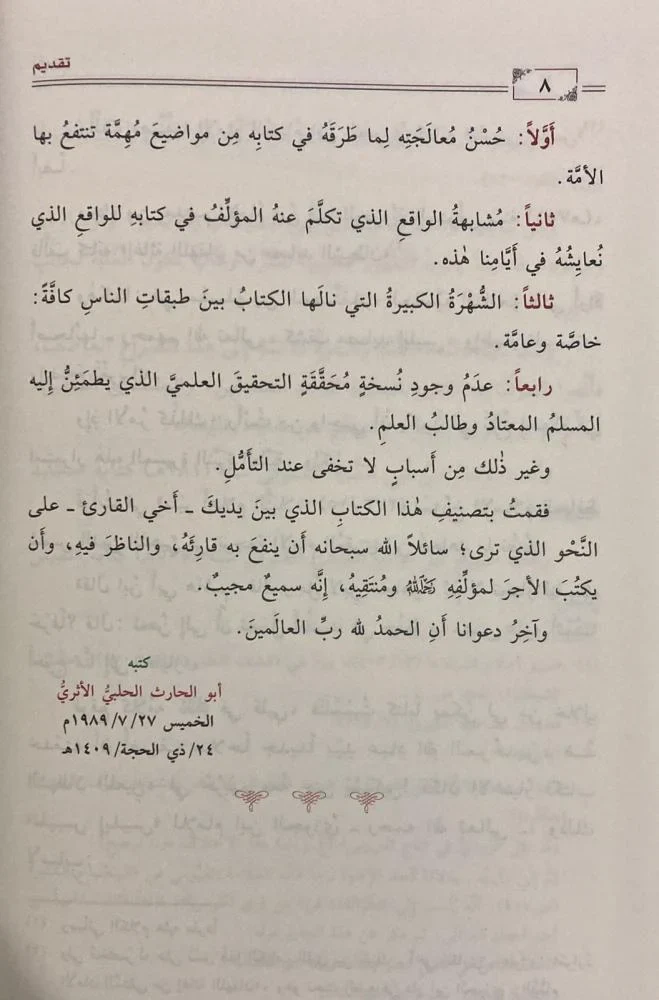 تقديم
٨
أَوَّلاً: حُسْنُ مُعالَجَتِه لِما طَرَقَهُ في كتابِه مِن مواضيعَ مُهِمَّة تنتفعُ بها
الأمَّة.
ثانياً: مُشابهةُ الواقعِ الذي تكلَّمَ عنهُ المؤلِّفُ في كتابهِ للواقعِ الذي
نُعايِشُهُ في أَيَّامِنا هٰذه.
ثالثاً: الشُّهْرَةُ الكبيرةُ التي نالَها الكتابُ بينَ طبقاتِ الناسِ كافَّةً:
خاصَّة وعامَّة.
رابعاً: عدَمُ وجودِ نُسخةٍ مُحَقَّقَةٍ التحقيقَ العلميَّ الذي يطمَئِنُّ إليه
المسلمُ المعتادُ وطالبُ العلمِ.
وغير ذٰلك مِن أَسبابٍ لا تخفى عند التأَمُّلِ.
فقمتُ بتصنيفِ هٰذا الكتابِ الذي بينَ يديكَ ـ أَخي القارئ ـ على
النَّحْو الذي ترى؛ سائلاً الله سبحانه أَن ينفعَ به قارِئَهُ، والناظرَ فيهِ، وأَن
يكتُبَ الأجرَ لمؤلِّفِهِ رَحِمَهُ اللهُ ومُنتَقِيهُ، إِنَّه سميعٌ مجيبٌ.
وآخِرُ دعوانا أَنِ الحمدُ لله ربِّ العالَمينَ.
كتبه
أبو الحارث الحلبيُّ الأثريُّ
الخميس ١٩٨٩/٧/٢٧م
٢٤/ذي الحجة/١٤٠٩هـ